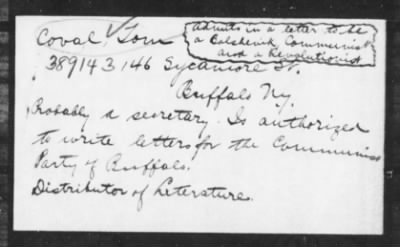 Coval, Tom
Admits in a letter to be
a Bolshevik, Communist
and a Revolutionist
389143 146 Sycamore St.
Buffalo Ny.
Probably a secretary. Is authorized
to write letters for the Communist
Party of Buffalo.
Distributor of Leterature.